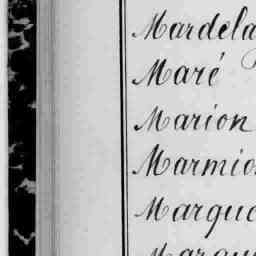 Mardela
Maré
Marion
Marmio
Marque